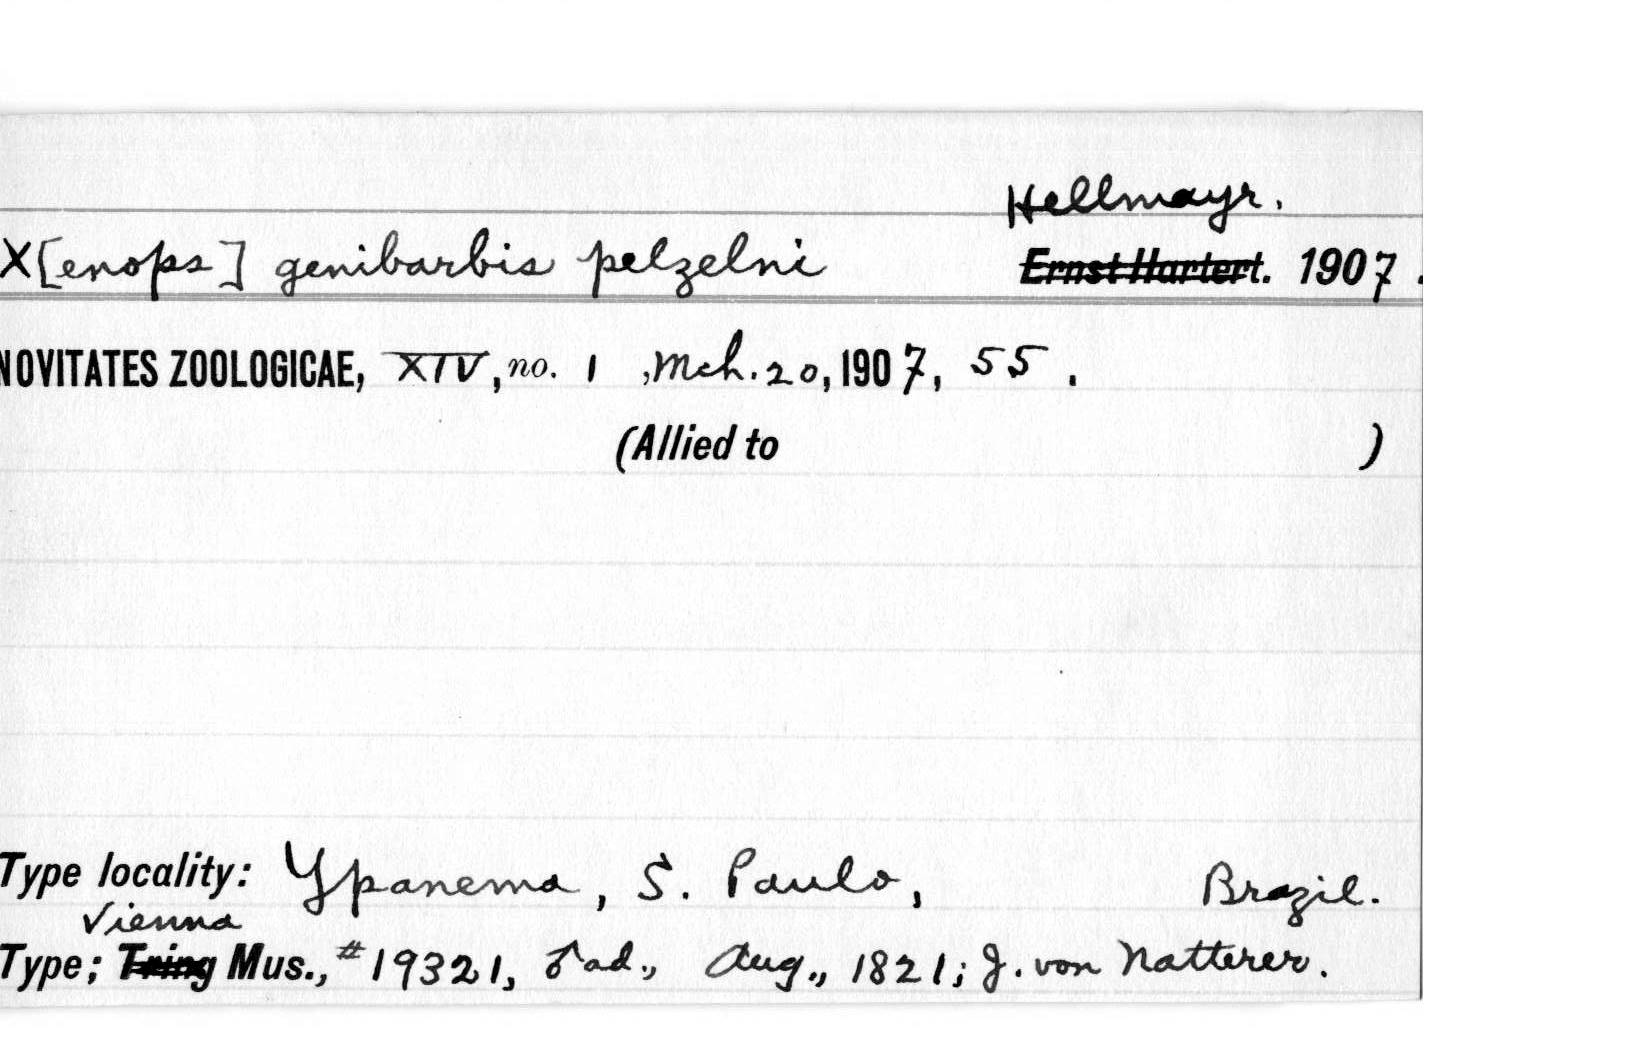 Hellmayr.
X[enops] genibarbis pelzelni Ernst Hartert. 1907.
NOVITATES ZOOLOGICAE, XIV, no. 1, Mch. 20, 1907, 55.
(Allied to )
Type locality: Ypanema, S. Paulo, Brazil.
Vienna
Type; Tring Mus., #19321, ♂ ad., Aug., 1821; J. von Natterer.